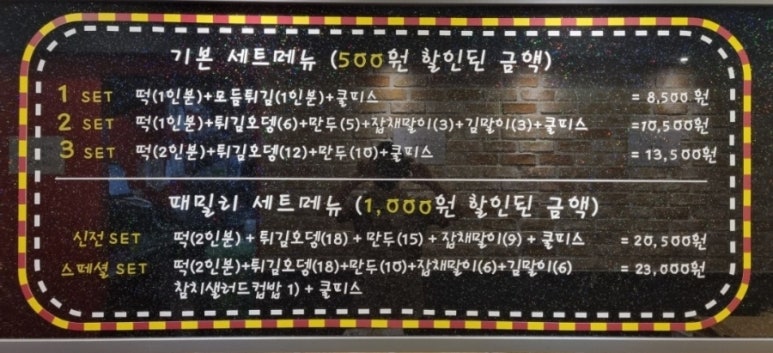 기본 세트메뉴 (500원 할인된 금액)
1 SET 떡(1인분)+모듬튀김(1인분)+쿨피스 = 8,500 원
2 SET 떡(1인분)+튀김오뎅(6)+만두(5)+잡채말이(3)+김말이(3)+쿨피스 =10,500원
3 SET 떡(2인분)+튀김오뎅(12)+만두(10)+쿨피스 = 13,500원
패밀리 세트메뉴 (1,000원 할인된 금액)
신전 SET 떡(2인분) + 튀김오뎅(18) + 만두(15) + 잡채말이(9) + 쿨피스 = 20,500원
스페셜 SET 떡(2인분)+튀김오뎅(18)+만두(10)+잡채말이(6)+김말이(6) = 23,000원
참치샐러드컵밥 1) + 쿨피스